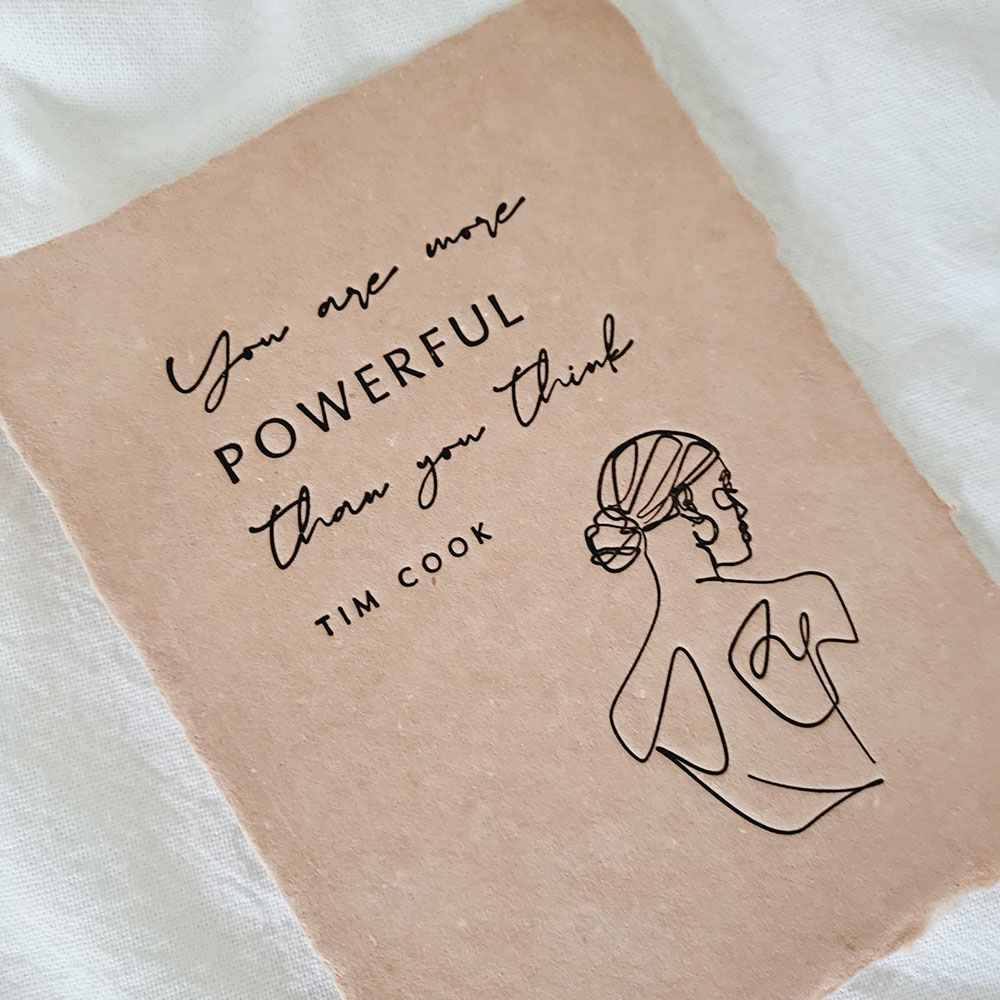 You are more
POWERFUL
than you think
TIM COOK